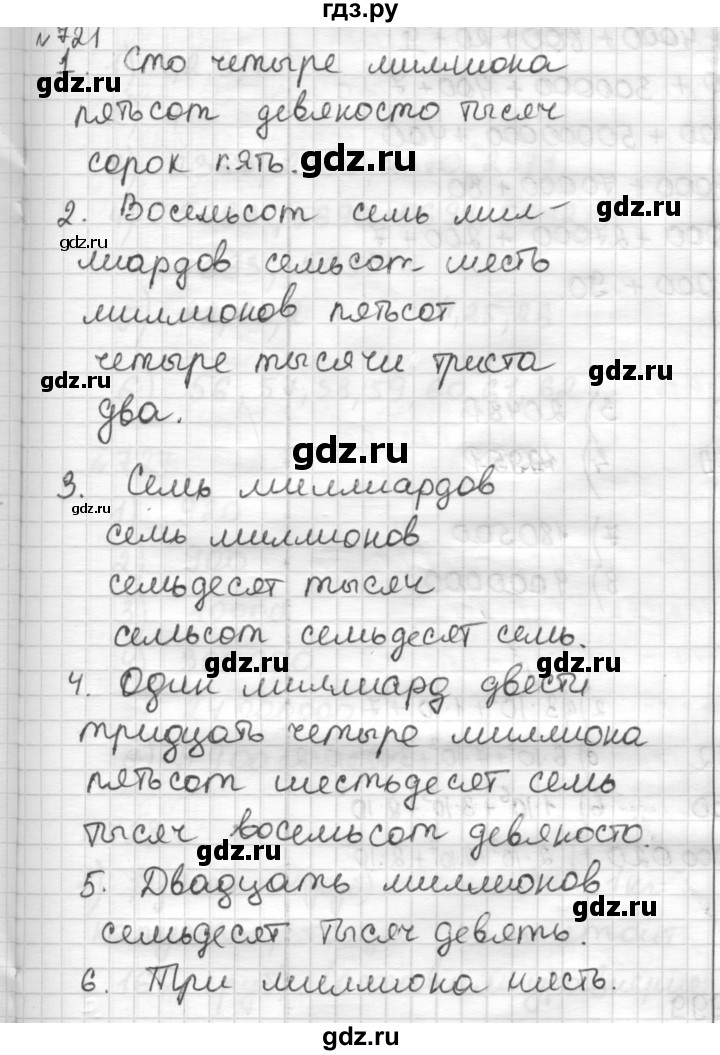 гдз.ру
№721
1. Сто четыре миллиона
пятьсот девяносто тысяч
сорок пять.
gdz.ru
2. Восемьсот семь мил-
gdz.ru
gdz.ru
лиардов семьсот шесть
миллионов пятьсот
четыре тысячи триста
gdz.ru
gdz.ru
два.
gdz.ru
3. Семь миллиардов
gdz.ru
семь миллионов
семьдесят тысяч
семьсот семьдесят семь.
gdz.ru
gdz.ru
4. Один миллиард двести
тридцать четыре миллиона
пятьсот шестьдесят семь
тысяч восемьсот девяносто.
gdz.ru
5. Двадцать миллионов
gdz.ru
семьдесят тысяч девять.
6. Три миллиона шесть.
gdz.ru